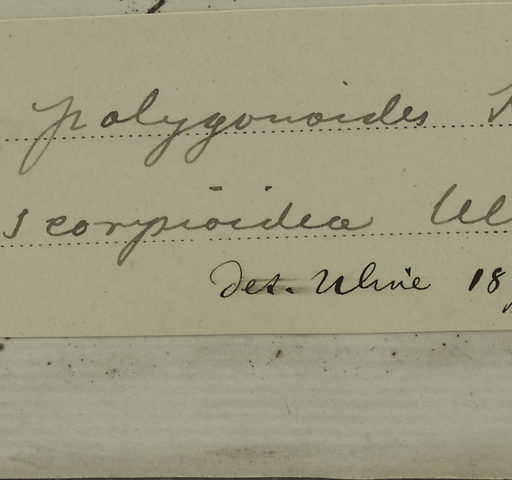 polygonoides
scorpioidea Ul
Det. Uline 18